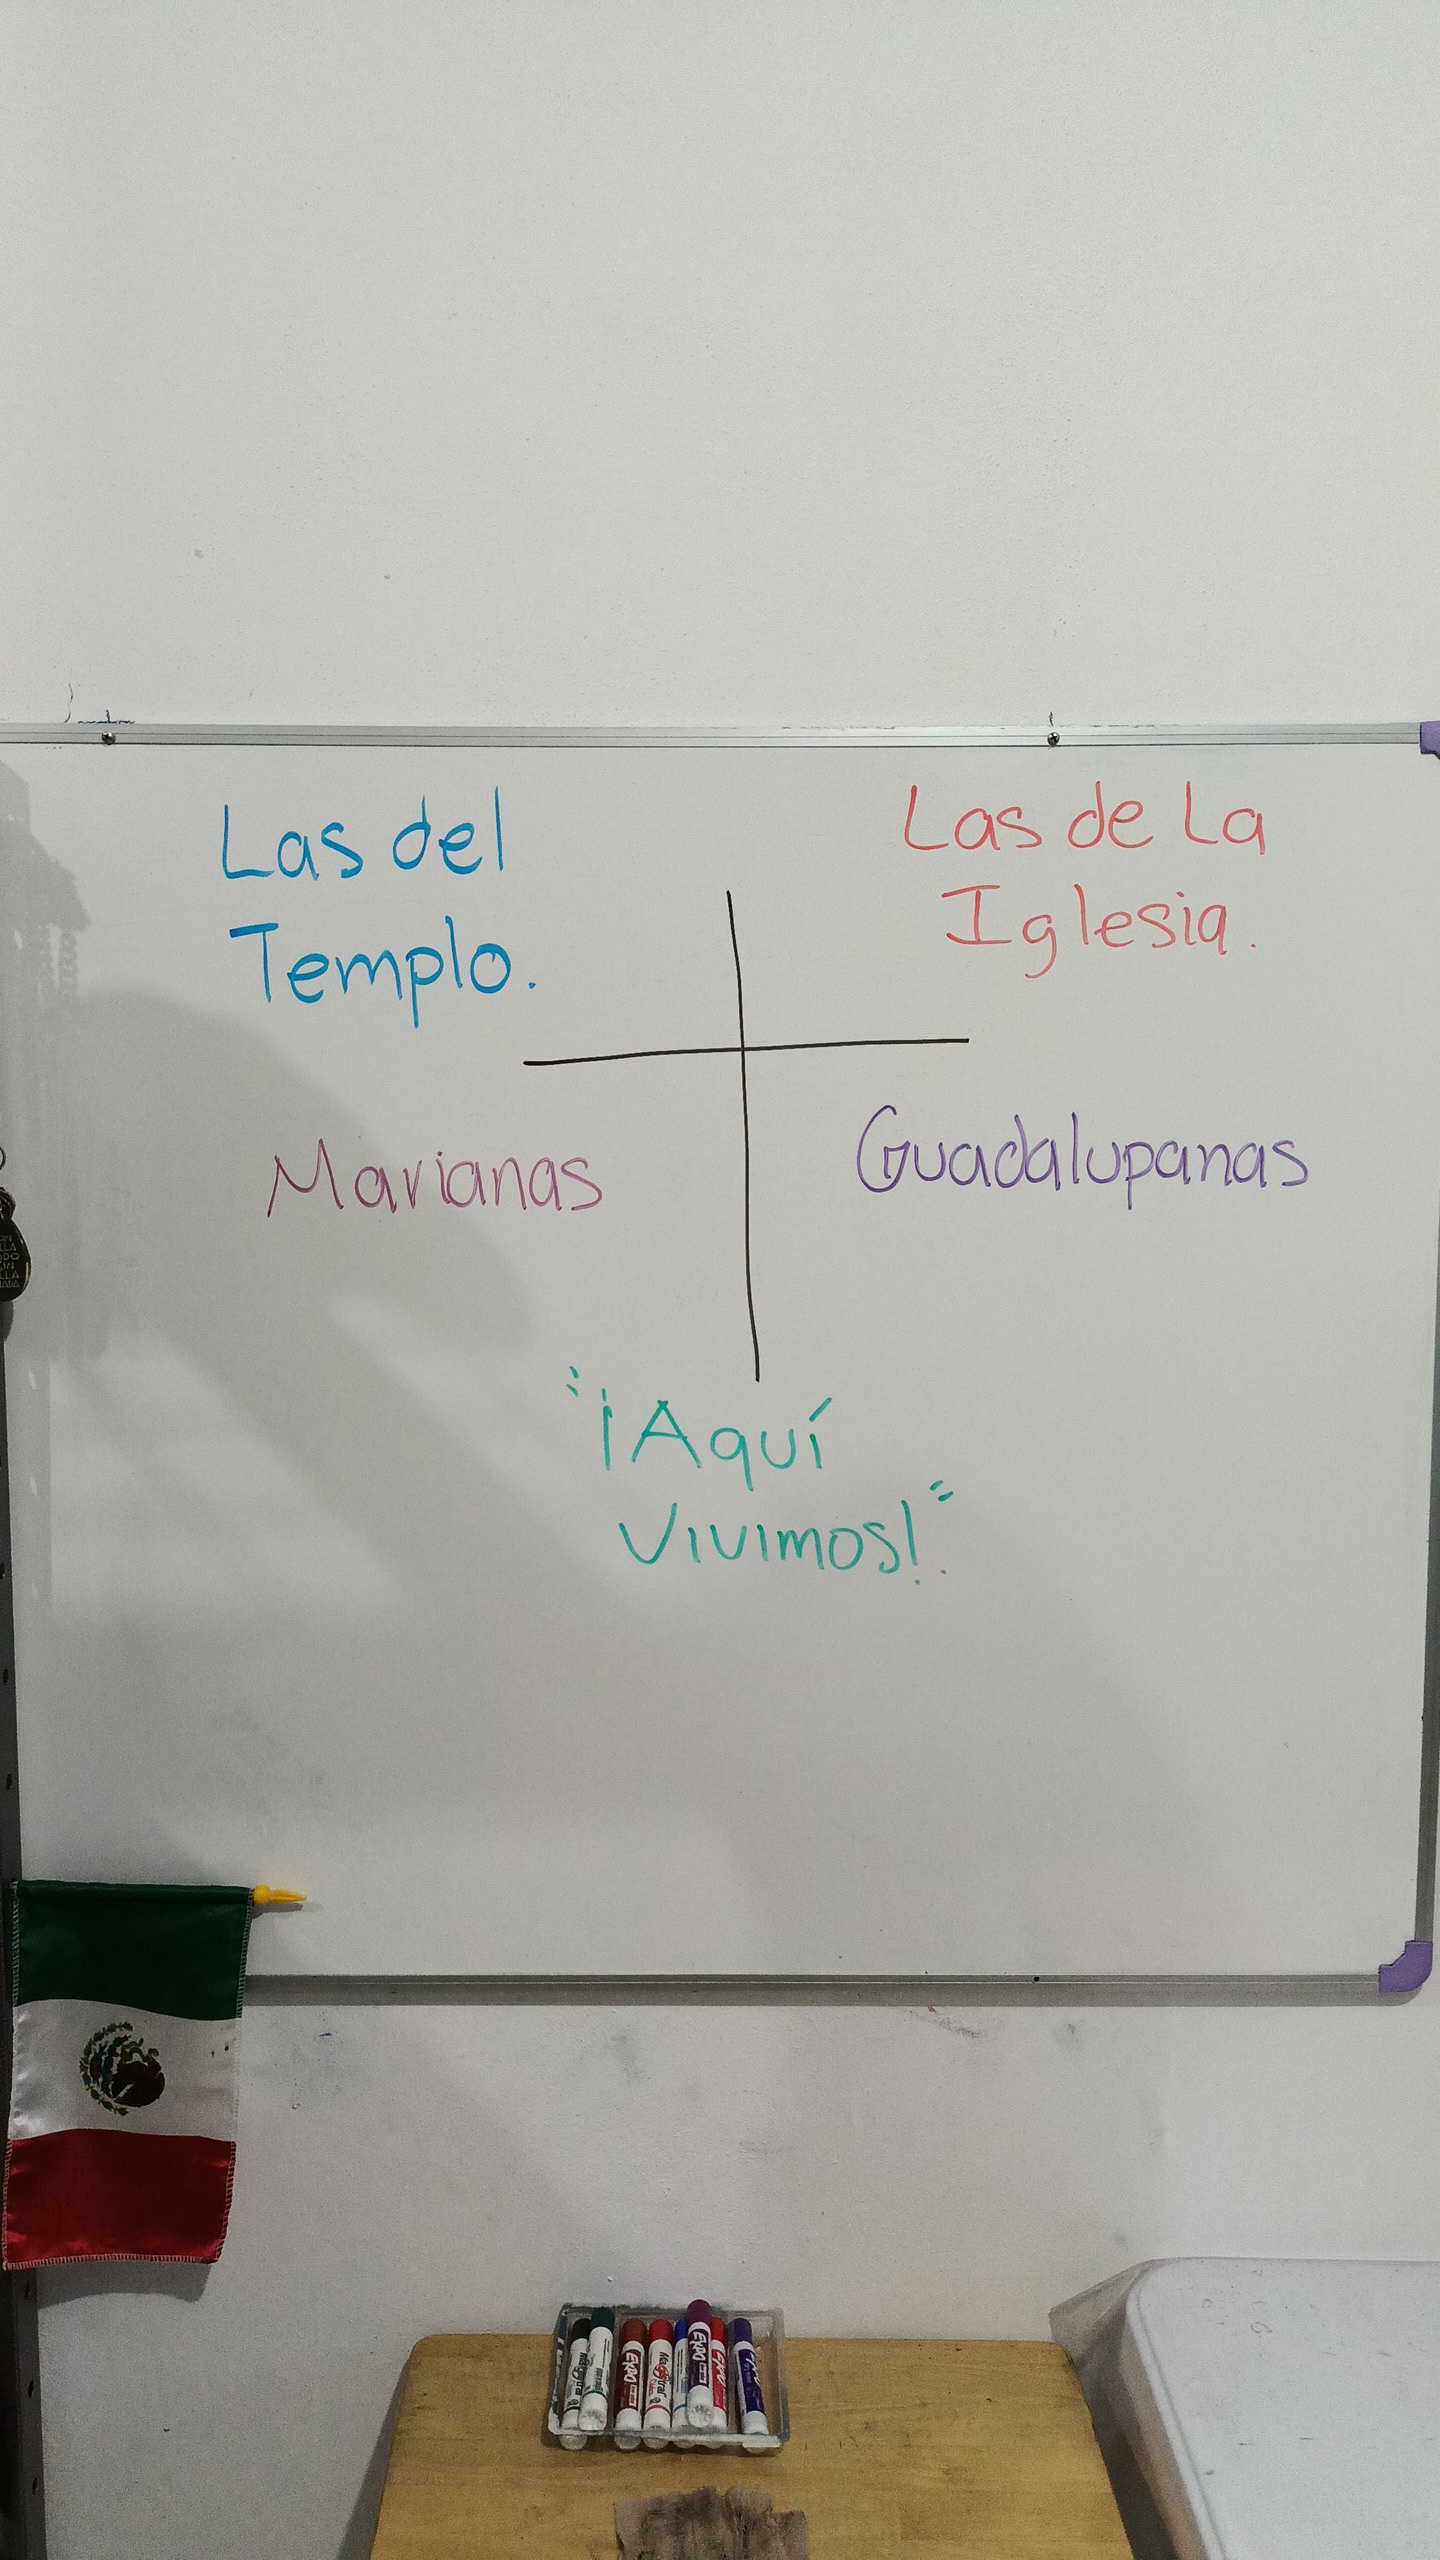 Las del
Templo.
Las de La
Iglesia.
Marianas
Guadalupanas
"¡Aquí
Vivimos!."
EXPO
Magistral
EXPO
EXPO